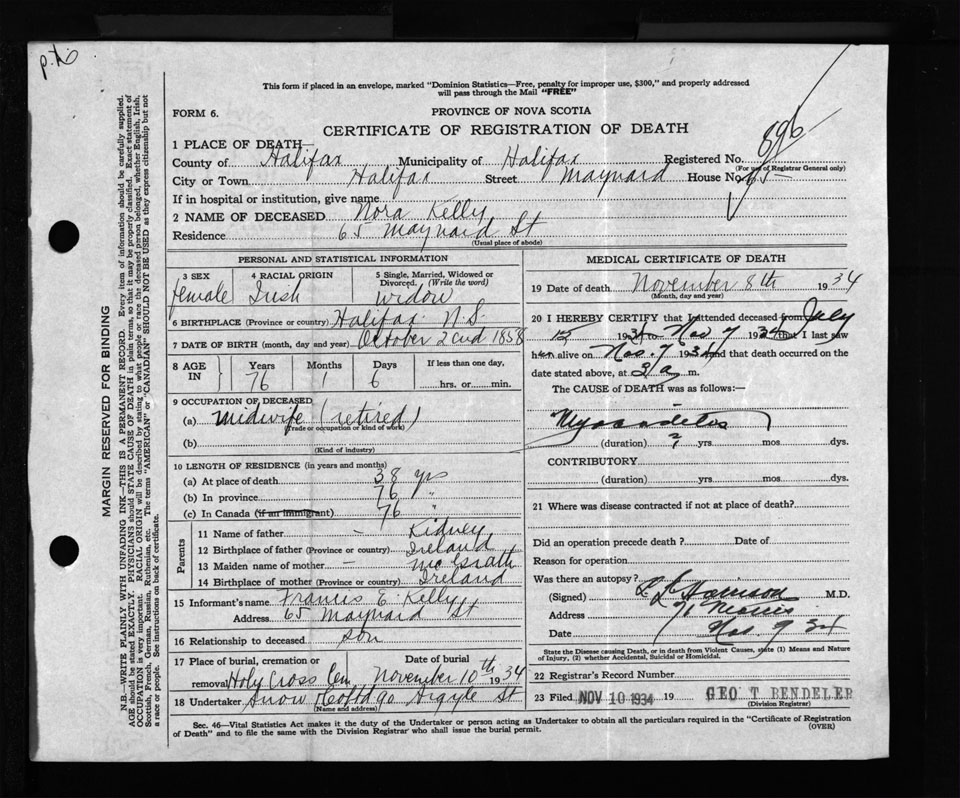 This form if placed in an envelope, marked "Dominion Statistics—Free, penalty for improper use, $300," and properly addressed
will pass through the Mail "FREE"
FORM 6.
PROVINCE OF NOVA SCOTIA
CERTIFICATE OF REGISTRATION OF DEATH
896
1 PLACE OF DEATH—
County of Halifax Municipality of Halifax Registered No.
(For use of Registrar General only)
City or Town Halifax Street Maynard House No. 65
If in hospital or institution, give name
2 NAME OF DECEASED Nora Kelly
Residence 65 Maynard St
(Usual place of abode)
PERSONAL AND STATISTICAL INFORMATION
3 SEX 4 RACIAL ORIGIN 5 Single, Married, Widowed or
Divorced. (Write the word)
female Irish widow
6 BIRTHPLACE (Province or country) Halifax N.S.
7 DATE OF BIRTH (month, day and year) October 2cnd 1858
8 AGE IN Years Months Days If less than one day,
76 1 6 hrs. or min.
9 OCCUPATION OF DECEASED
(a) Midwife (retired)
(Trade or occupation or kind of work)
(b)
(Kind of industry)
10 LENGTH OF RESIDENCE (in years and months)
(a) At place of death 38 yrs
(b) In province 76 "
(c) In Canada (if an immigrant) 76
Parents
11 Name of father — Kidney
12 Birthplace of father (Province or country) Ireland
13 Maiden name of mother — McGrath
14 Birthplace of mother (Province or country) Ireland
15 Informant's name Francis E. Kelly
Address 65 Maynard St
16 Relationship to deceased son
17 Place of burial, cremation or Date of burial
removal Holy Cross Cem November 10th 1934
18 Undertaker Snow & Co Ltd 90 Argyle St
(Name and address)
MEDICAL CERTIFICATE OF DEATH
19 Date of death November 8th 1934
(Month, day and year)
20 I HEREBY CERTIFY that I attended deceased from July
15 1934 to Nov 7 1934 that I last saw
her alive on Nov. 7 1934 and that death occurred on the
date stated above, at 3 a m.
The CAUSE of DEATH was as follows:—
(duration) ? yrs. mos. dys.
CONTRIBUTORY
(duration) yrs. mos. dys.
21 Where was disease contracted if not at place of death?
Did an operation precede death? Date of
Reason for operation
Was there an autopsy?
(Signed) M.D.
Address 71 Morris
Date Nov. 9 34
State the Disease causing Death, or in death from Violent Causes, state (1) Means and Nature
of Injury, (2) whether Accidental, Suicidal or Homicidal.
22 Registrar's Record Number
23 Filed NOV 10 1934 19 GEO T BENDELER
(Division Registrar)
Sec. 46—Vital Statistics Act makes it the duty of the Undertaker or person acting as Undertaker to obtain all the particulars required in the "Certificate of Registration
of Death" and to file the same with the Division Registrar who shall issue the burial permit.
(OVER)
MARGIN RESERVED FOR BINDING
N.B.—WRITE PLAINLY WITH UNFADING INK—THIS IS A PERMANENT RECORD. Every item of information should be carefully supplied.
AGE should be stated EXACTLY. PHYSICIANS should STATE CAUSE OF DEATH in plain terms, so that it may be properly classified. Exact statement of
OCCUPATION is very important. RACIAL ORIGIN will be described by stating to what people or race the deceased person belonged, whether English, Irish,
Scottish, French, German, Russian, Ruthenian, etc. The terms "AMERICAN" or "CANADIAN" SHOULD NOT BE USED as they express citizenship but not
a race or people. See instructions on back of certificate.